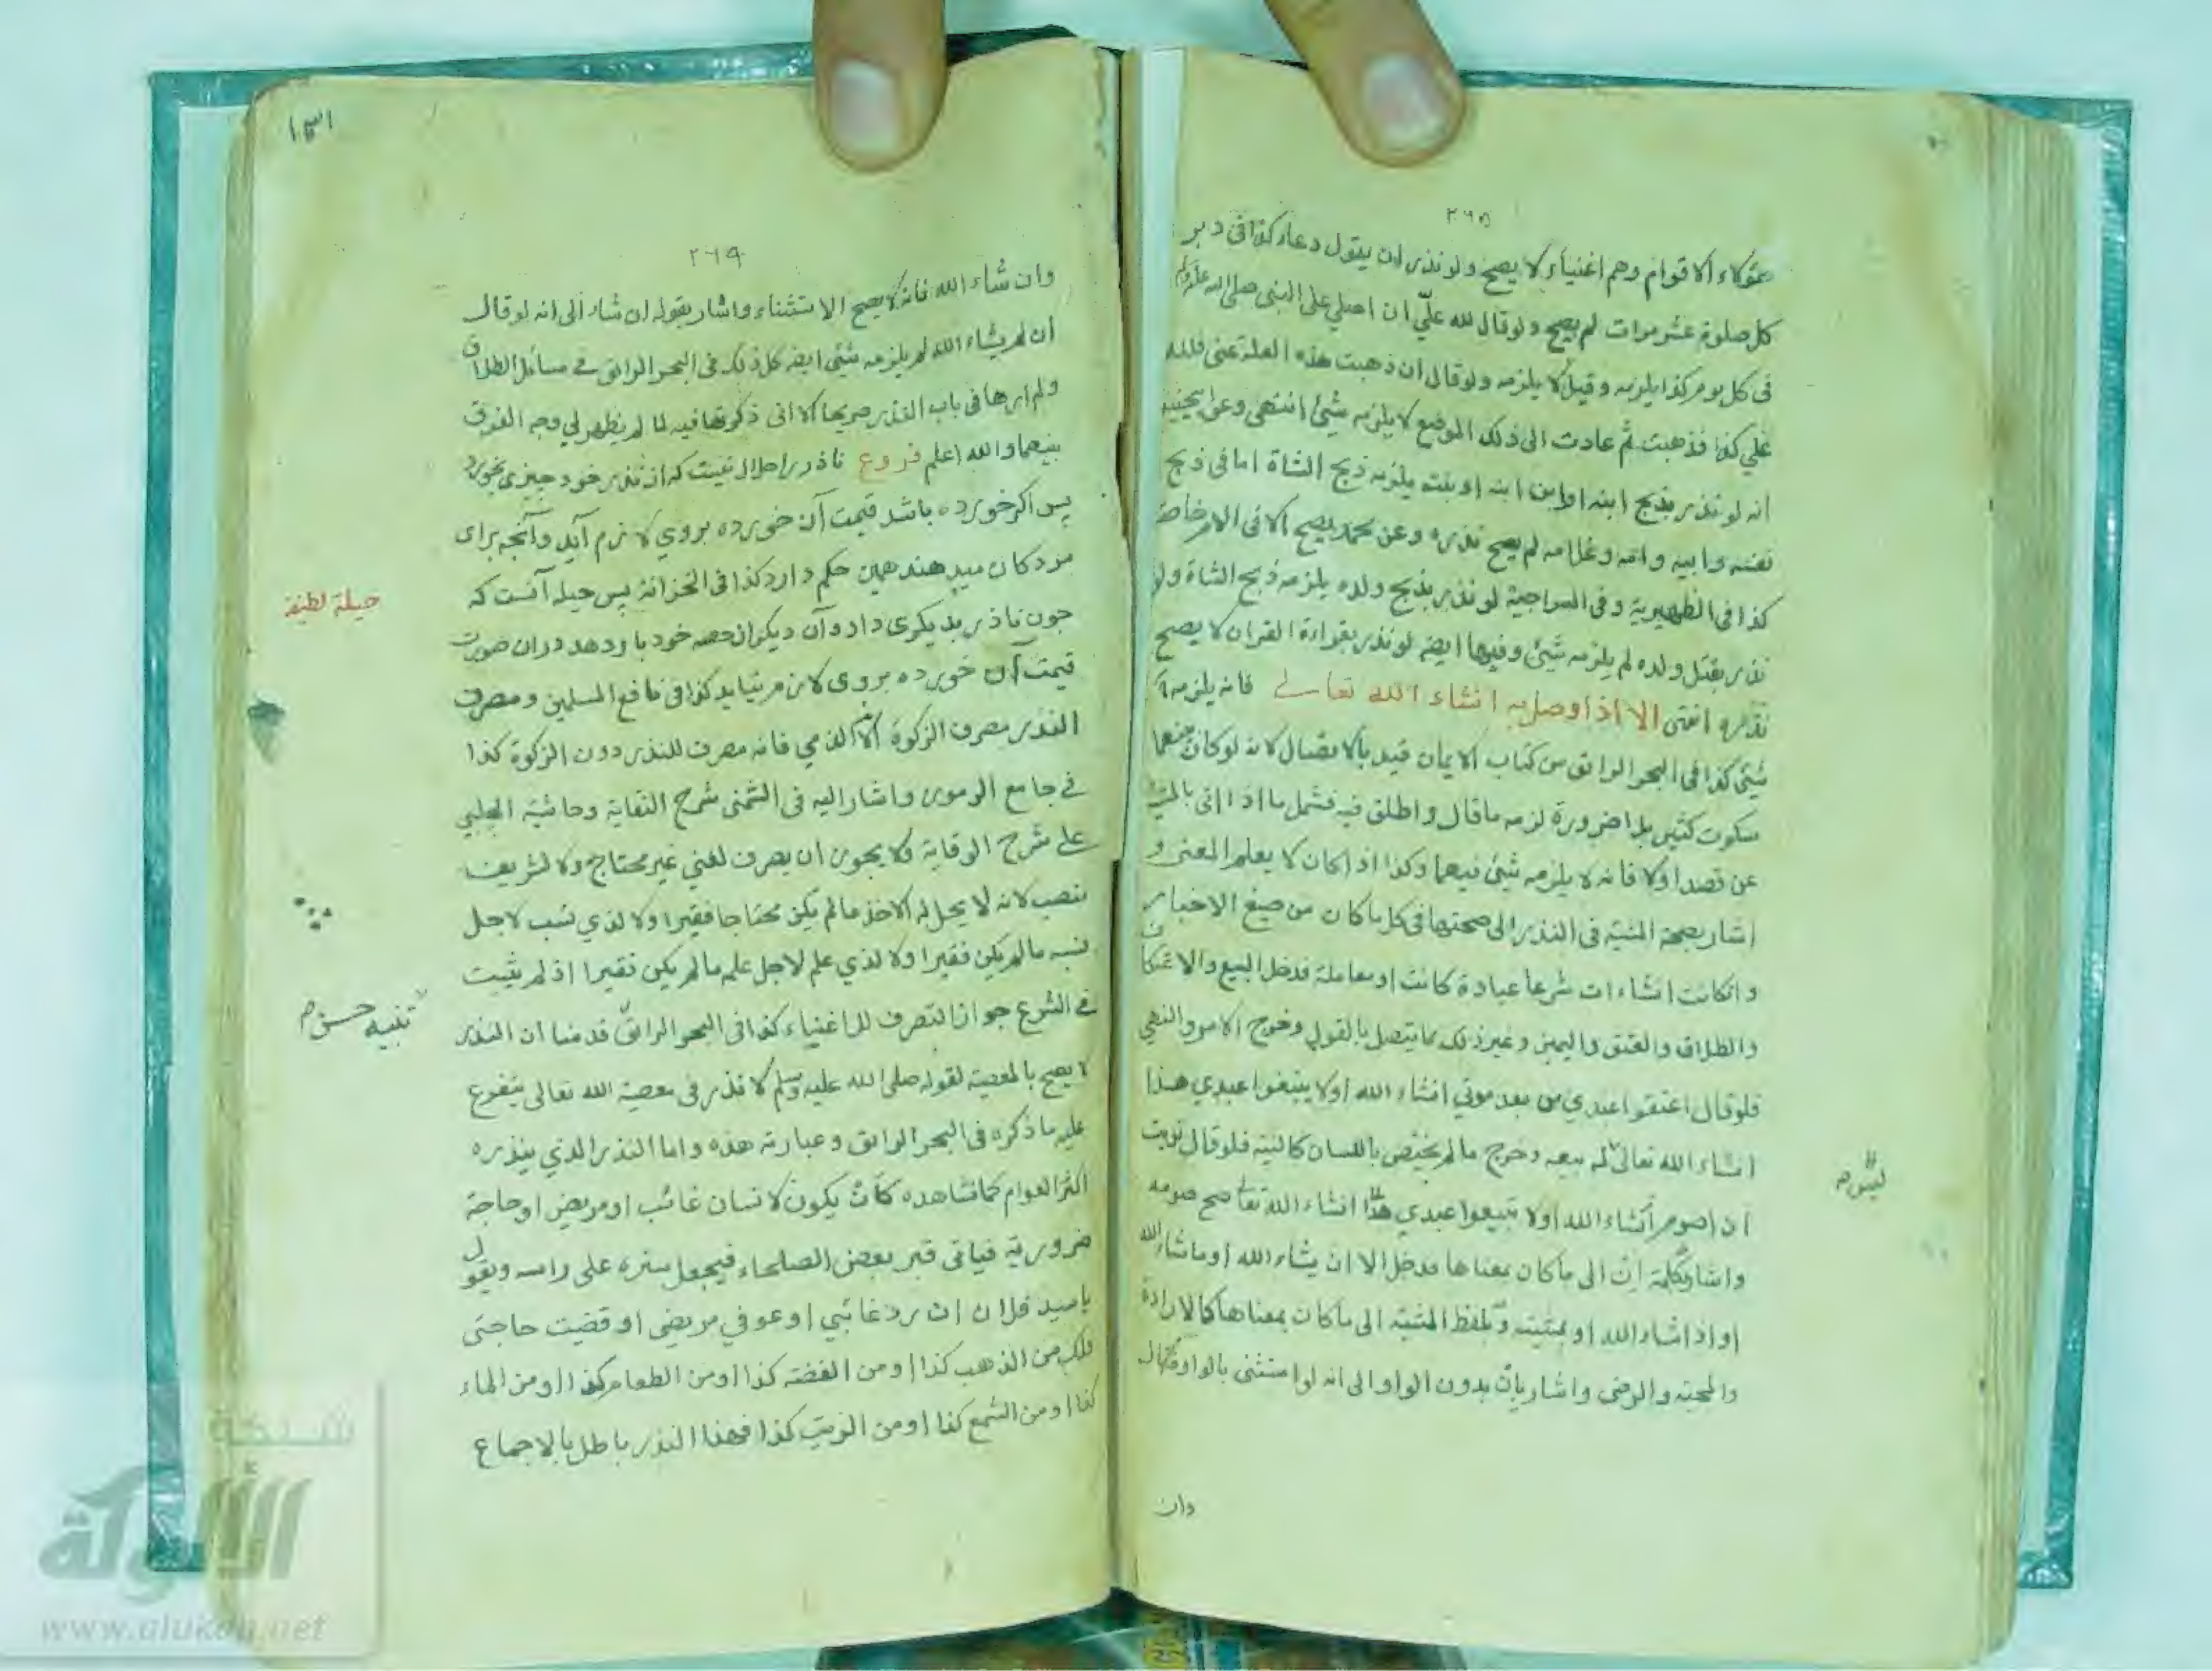 ٢٦٥
هؤلاء الاقوام وهم اغنياء لا يصح ولو نذر ان يقول دعاء كذا فى دبر
كل صلوة عشر مرات لم يصح ولو قال لله علىّ ان اصلي على النبى صلى الله عليه وسلم
فى كل يوم كذا يلزمه وقيل لا يلزمه ولو قال ان ذهبت هذه العلة عنى فلله
علي كذا فذهبت ثم عادت الى ذلك الموضع لا يلزمه شيئ انتهى وعن ابيحنيفة
انه لو نذر بذبح ابنه او ابن ابنه او بنته يلزمه ذبح الشاة اما فى ذبح
نفسه وابيه وامه وغلامه لم يصح نذره وعن محمد يصح الا فى الام خاصة
كذا فى الظهيرية وفى السراجية لو نذر بذبح ولده يلزمه ذبح الشاة ولو
نذر بقتل ولده لم يلزمه شيئ وفيها ايضه لو نذر بقراءة القران لا يصح
نذره انتهى الا اذا وصل به انشاء الله تعالى فانه يلزمه
شيئ كذا فى البحر الرائق من كتاب الايمان قيد بالاتصال لانه لو كان بينهما
سكوت كثير بلا ضرورة لزمه ما قال واطلق فيه فشمل ما اذا اتى بالمشية
عن قصد اولا فانه لا يلزمه شيئ فيهما وكذا اذا كان لا يعلم المعنى و
اشار بصحة المشية فى النذر الى صحتها فى كل ما كان من صيغ الاخبار
وانكانت انشاءات شرعا عبادة كانت او معاملة فدخل البيع والاعتكاف
والطلاق والعتق واليمين وغير ذلك مما يتصل بالقول وخرج الامر والنهي
فلو قال اعتقوا عبدي من بعد موتي انشاء الله اولا يبيعوا عبدي هذا
انشاء الله تعالى له بيعه وخرج مالم يختص باللسان كالنية فلو قال نويت
ان اصوم انشاء الله اولا تبيعوا عبدي هذا انشاء الله تعا صح صومه
واشار بكلمة ان الى ما كان بمعناها فدخل الا ان يشاء الله او ما شاء الله
او اذا شاء الله او بمشيته وبلفظ المشية الى ما كان بمعناها كالارادة
والمحبة والرضى واشار بان بدون الواو الى انه لو استثنى بالواو فقال
وان
٢٦٩
وان شاء الله فانه لا يصح الاستثناء واشار بقوله ان شاء الى انه لو قال
ان لم يشاء الله لم يلزمه شيئ ايضه كل ذلك فى البحر الرائق فى مسائل الطلاق
ولم ارها فى باب النذر صريحا الا انى ذكرتها فيه لما لم يظهر لي وجه الفرق
بينهما والله اعلم فروع ناذر را حلال نيست كه از نذر خود چيزى بخورد
پس اكر خورده باشد قيمت آن خورده بروي لازم آيد وآنچه براى
مردكان ميدهند همين حكم دارد كذا فى الخزانة پس حيله آنست كه
چون ناذر بديكرى داد وآن ديكر از حصه خود باو دهد دران صورت
قيمت آن خورده بروى لازم نيايد كذا فى نافع المسلمين ومصرف
النذر مصرف الزكوة الا الذمي فانه مصرف للنذر دون الزكوة كذا
فى جامع الرموز واشار اليه فى الشمنى شرح النقاية وحاشية الچلپي
على شرح الوقاية ولا يجوز ان يصرف لغني غير محتاج ولا لشريف
منصب لانه لا يحل له الاخذ مالم يكن محتاجا فقيرا ولا لذي نسب لاجل
نسبه مالم يكن فقيرا ولا لذي علم لاجل علمه مالم يكن فقيرا اذ لم يثبت
فى الشرع جواز التصرف للاغنياء كذا فى البحر الرائق قد منا ان النذر
لا يصح بالمعصية لقوله صلى الله عليه وسلم لا نذر فى معصية الله تعالى يتفرع
عليه ما ذكره فى البحر الرائق وعبارته هذه واما النذر الذي ينذره
اكثر العوام كما نشاهده كأن يكون لانسان غائب او مريض او حاجة
ضرورية فياتى قبر بعض الصلحاء فيجعل ستره على راسه ويقول
يا سيد فلان ان رد غائبي او عوفي مريضي او قضيت حاجتى
فلك من الذهب كذا او من الفضة كذا او من الطعام كذا او من الماء
كذا او من الشمع كذا او من الزيت كذا فهذا النذر باطل بالاجماع
حيلة لطيفة
تنبيه حسن م
شبكة
الألوكة
www.alukah.net